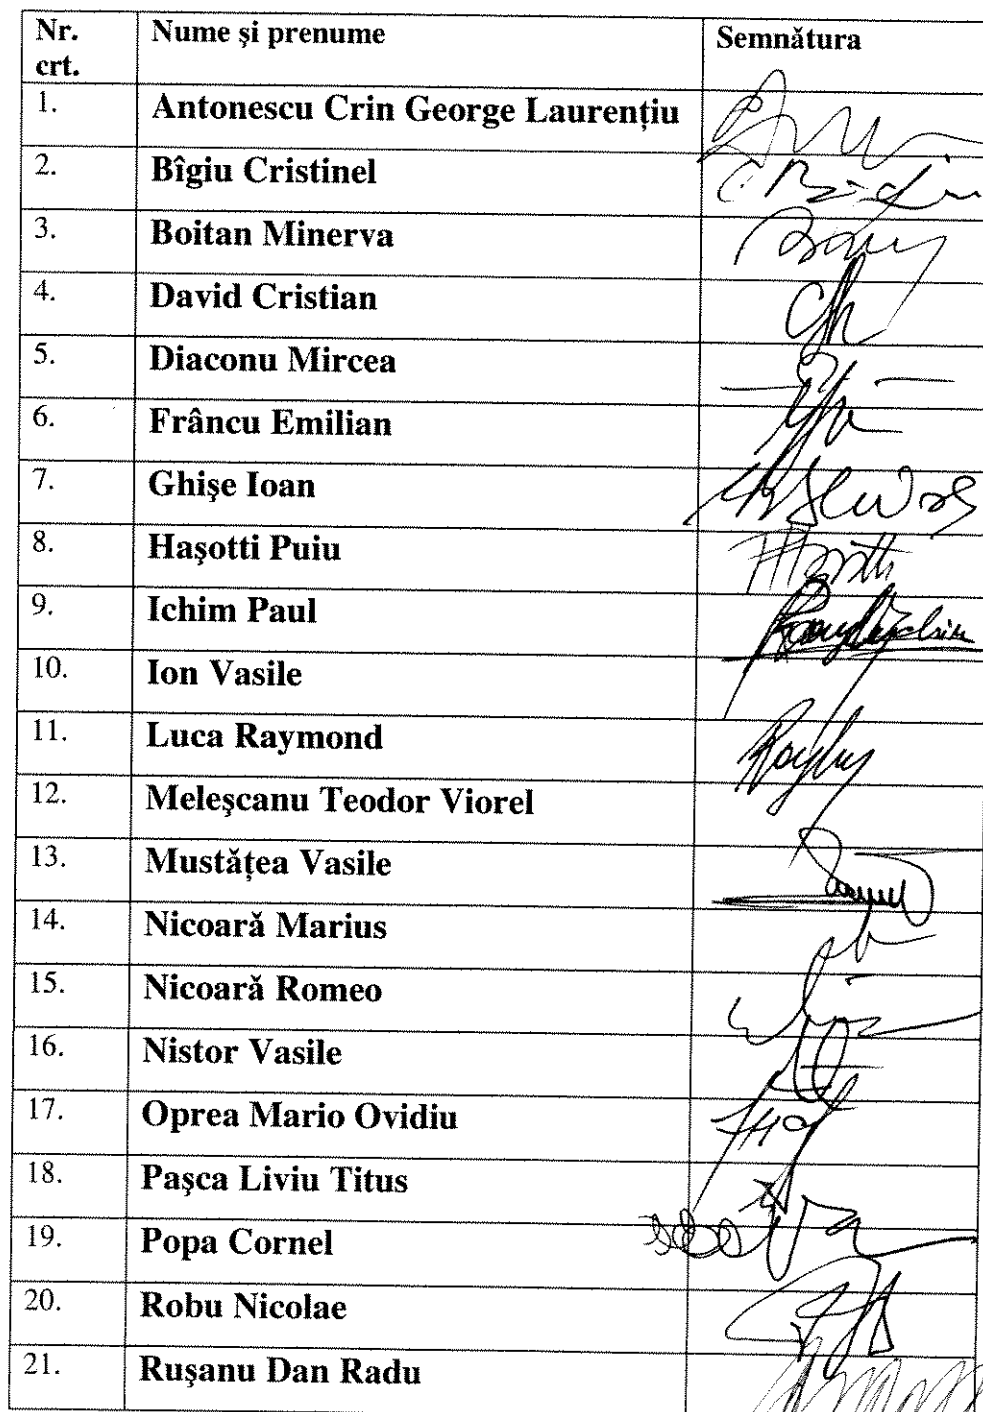 Nr. crt. Nume şi prenume Semnătura
1. Antonescu Crin George Laurenţiu
2. Bîgiu Cristinel
3. Boitan Minerva
4. David Cristian
5. Diaconu Mircea
6. Frâncu Emilian
7. Ghişe Ioan
8. Haşotti Puiu
9. Ichim Paul
10. Ion Vasile
11. Luca Raymond
12. Meleşcanu Teodor Viorel
13. Mustăţea Vasile
14. Nicoară Marius
15. Nicoară Romeo
16. Nistor Vasile
17. Oprea Mario Ovidiu
18. Paşca Liviu Titus
19. Popa Cornel
20. Robu Nicolae
21. Ruşanu Dan Radu